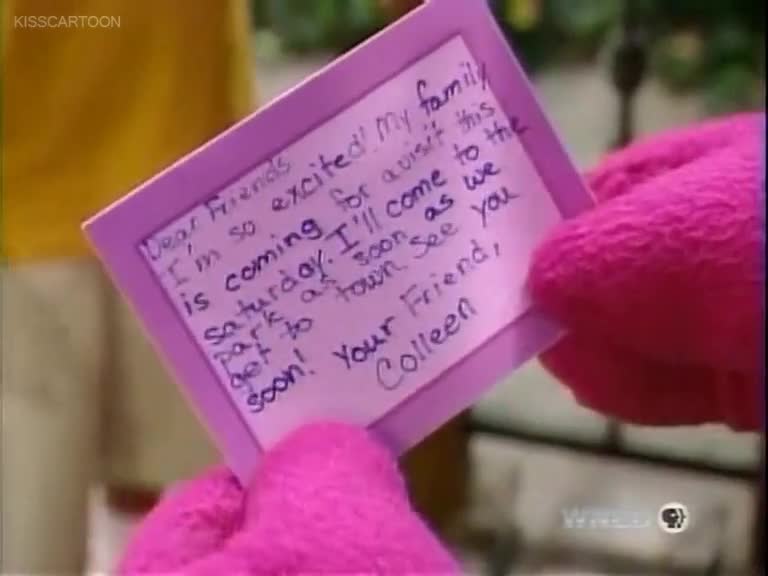 KISSCARTOON
Dear Friends
I'm so excited! My family
is coming for a visit this
saturday. I'll come to the
park as soon as we
get to town. See you
soon! Your Friend,
Colleen